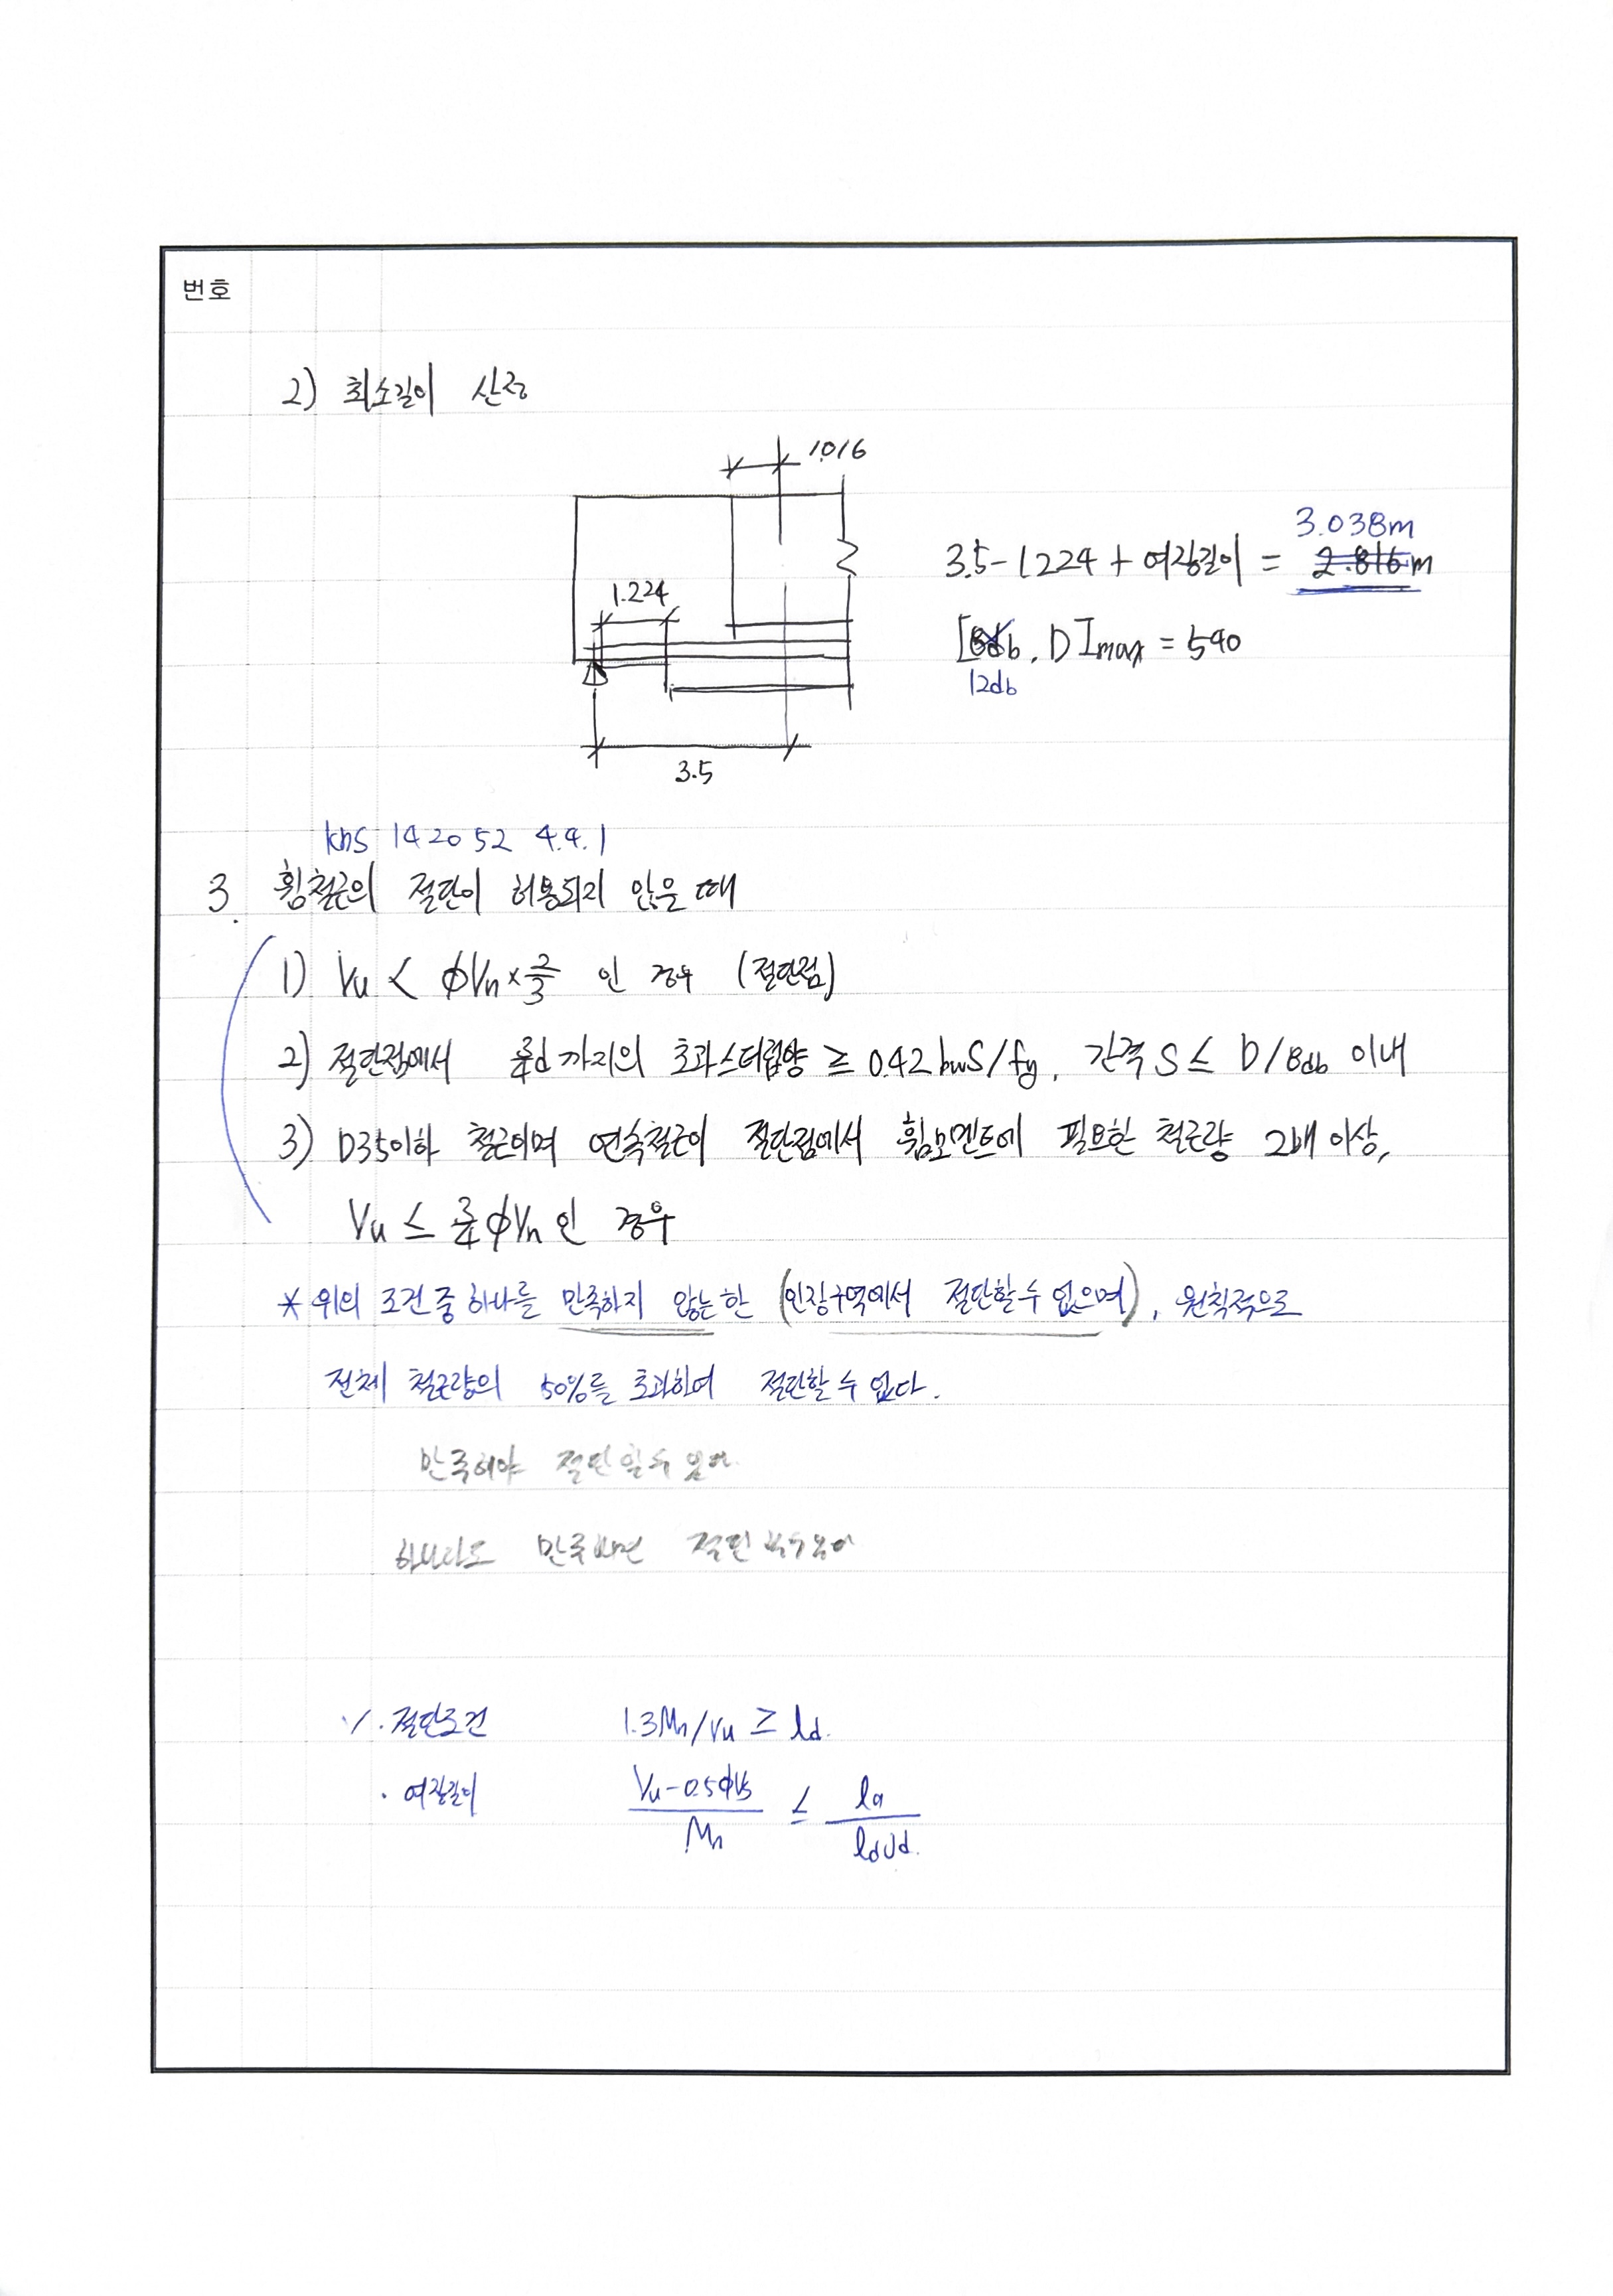 번호
2) 최소길이 산정
1.016
3.038m
3.5-1.224 + 여장길이 = 2.816m
1.224
[8db, D]max = 540
12db
3.5
kds 14 20 52 4.4.1
3. 휨철근의 절단이 허용되지 않을 때
1) Vu < φVn × 2/3 인 경우 (절단점)
2) 절단점에서 3/4d 까지의 초과스터럽양 ≥ 0.42bwS/fy, 간격 S ≤ D/8db 이내
3) D35이하 철근이며 연속철근이 절단점에서 휨모멘트에 필요한 철근량 2배 이상,
Vu ≤ 3/4 φVn 인 경우
* 위의 조건 중 하나를 만족하지 않는한 (인장구역에서 절단할 수 없으며), 원칙적으로
전체 철근량의 50%를 초과하여 절단할 수 없다.
만족해야 절단할 수 있어
하나라도 만족하면
· 절단조건 1.3Mn/Vu ≥ ld.
· 여장길이 (Vu-0.5φVs)/Mn ≤ la/ldjd.